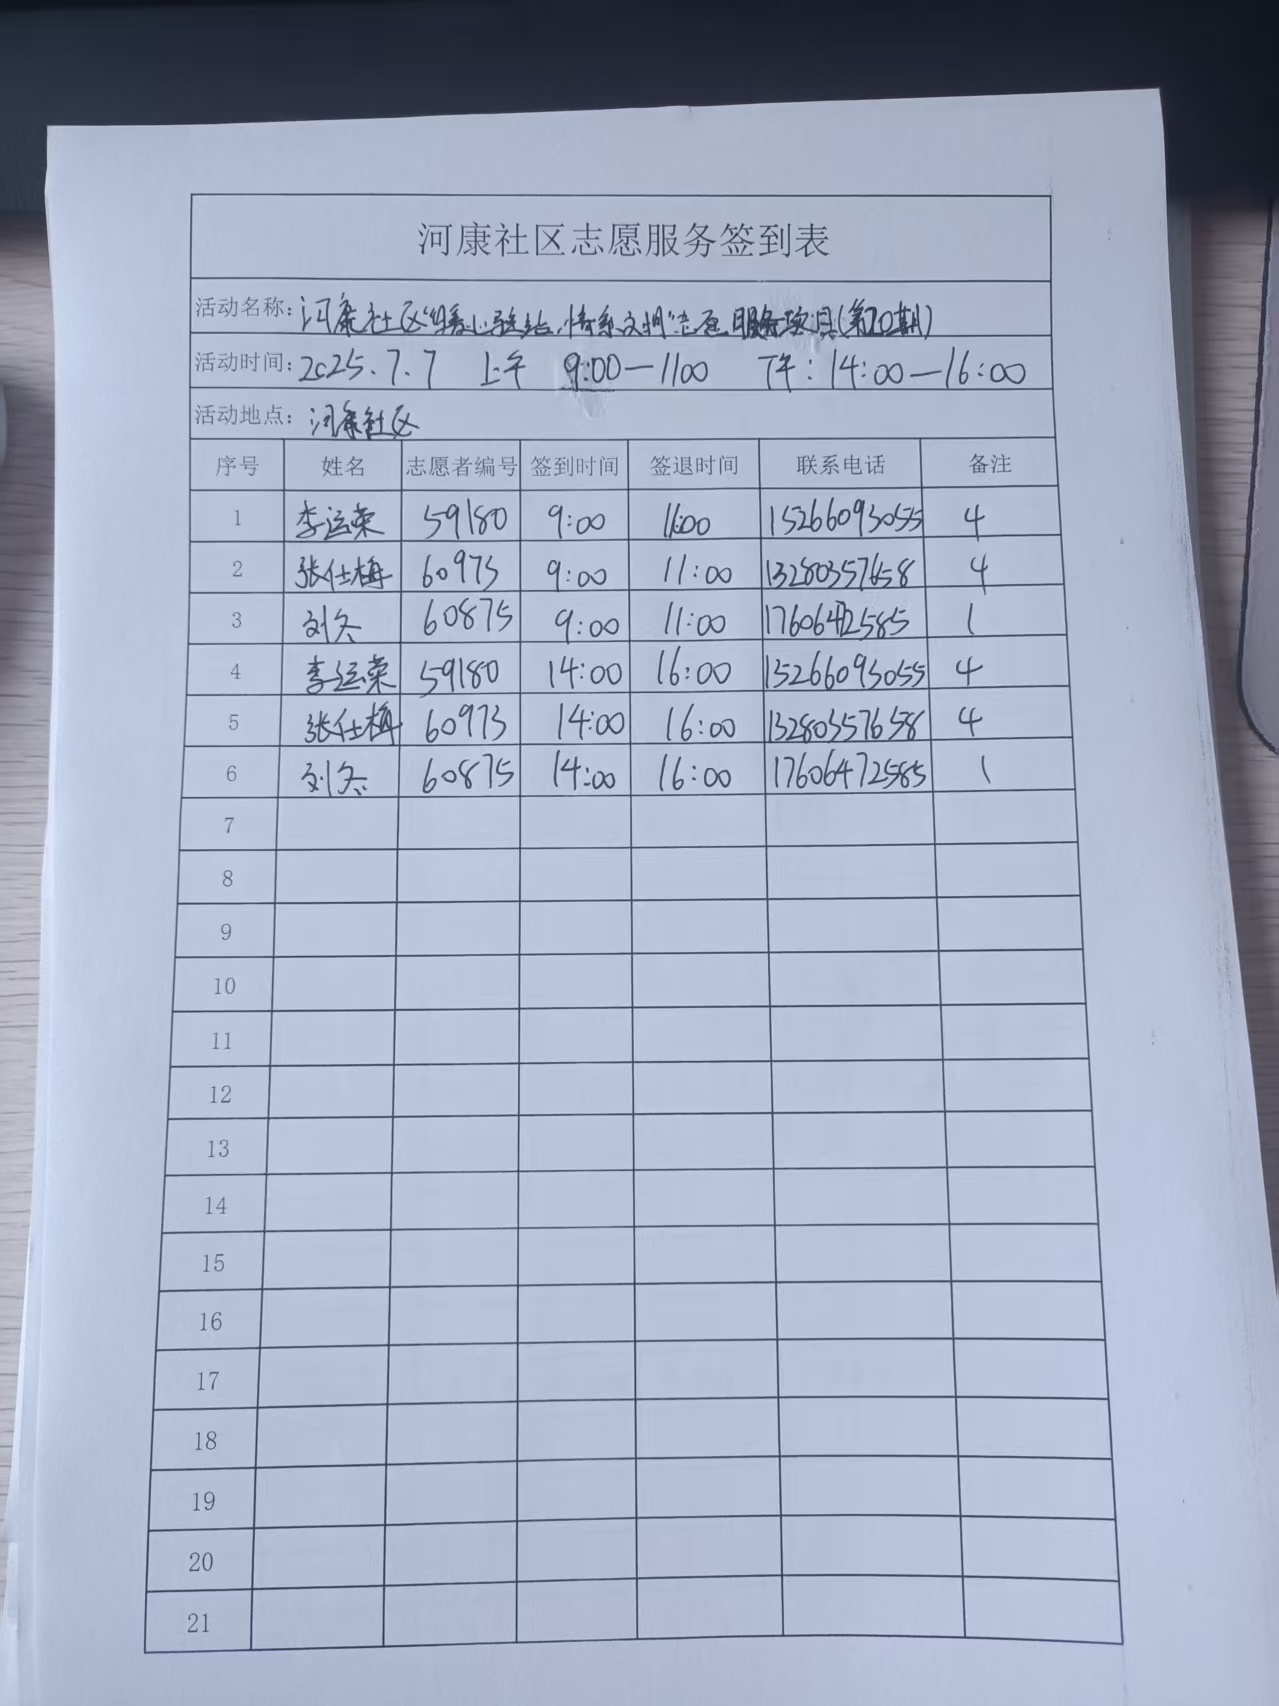 河康社区志愿服务签到表
活动名称: 河康社区"暖心驿站,情系文明"志愿服务项目(第20期)
活动时间: 2025.7.7 上午 9:00—1100 下午: 14:00—16:00
活动地点: 河康社区
序号 姓名 志愿者编号 签到时间 签退时间 联系电话 备注
1 李运荣 59180 9:00 11:00 15266093055 4
2 张仕梅 60973 9:00 11:00 13280357658 4
3 刘冬 60875 9:00 11:00 17606472585 1
4 李运荣 59180 14:00 16:00 15266093055 4
5 张仕梅 60973 14:00 16:00 13280357658 4
6 刘冬 60875 14:00 16:00 17606472585 1
7
8
9
10
11
12
13
14
15
16
17
18
19
20
21